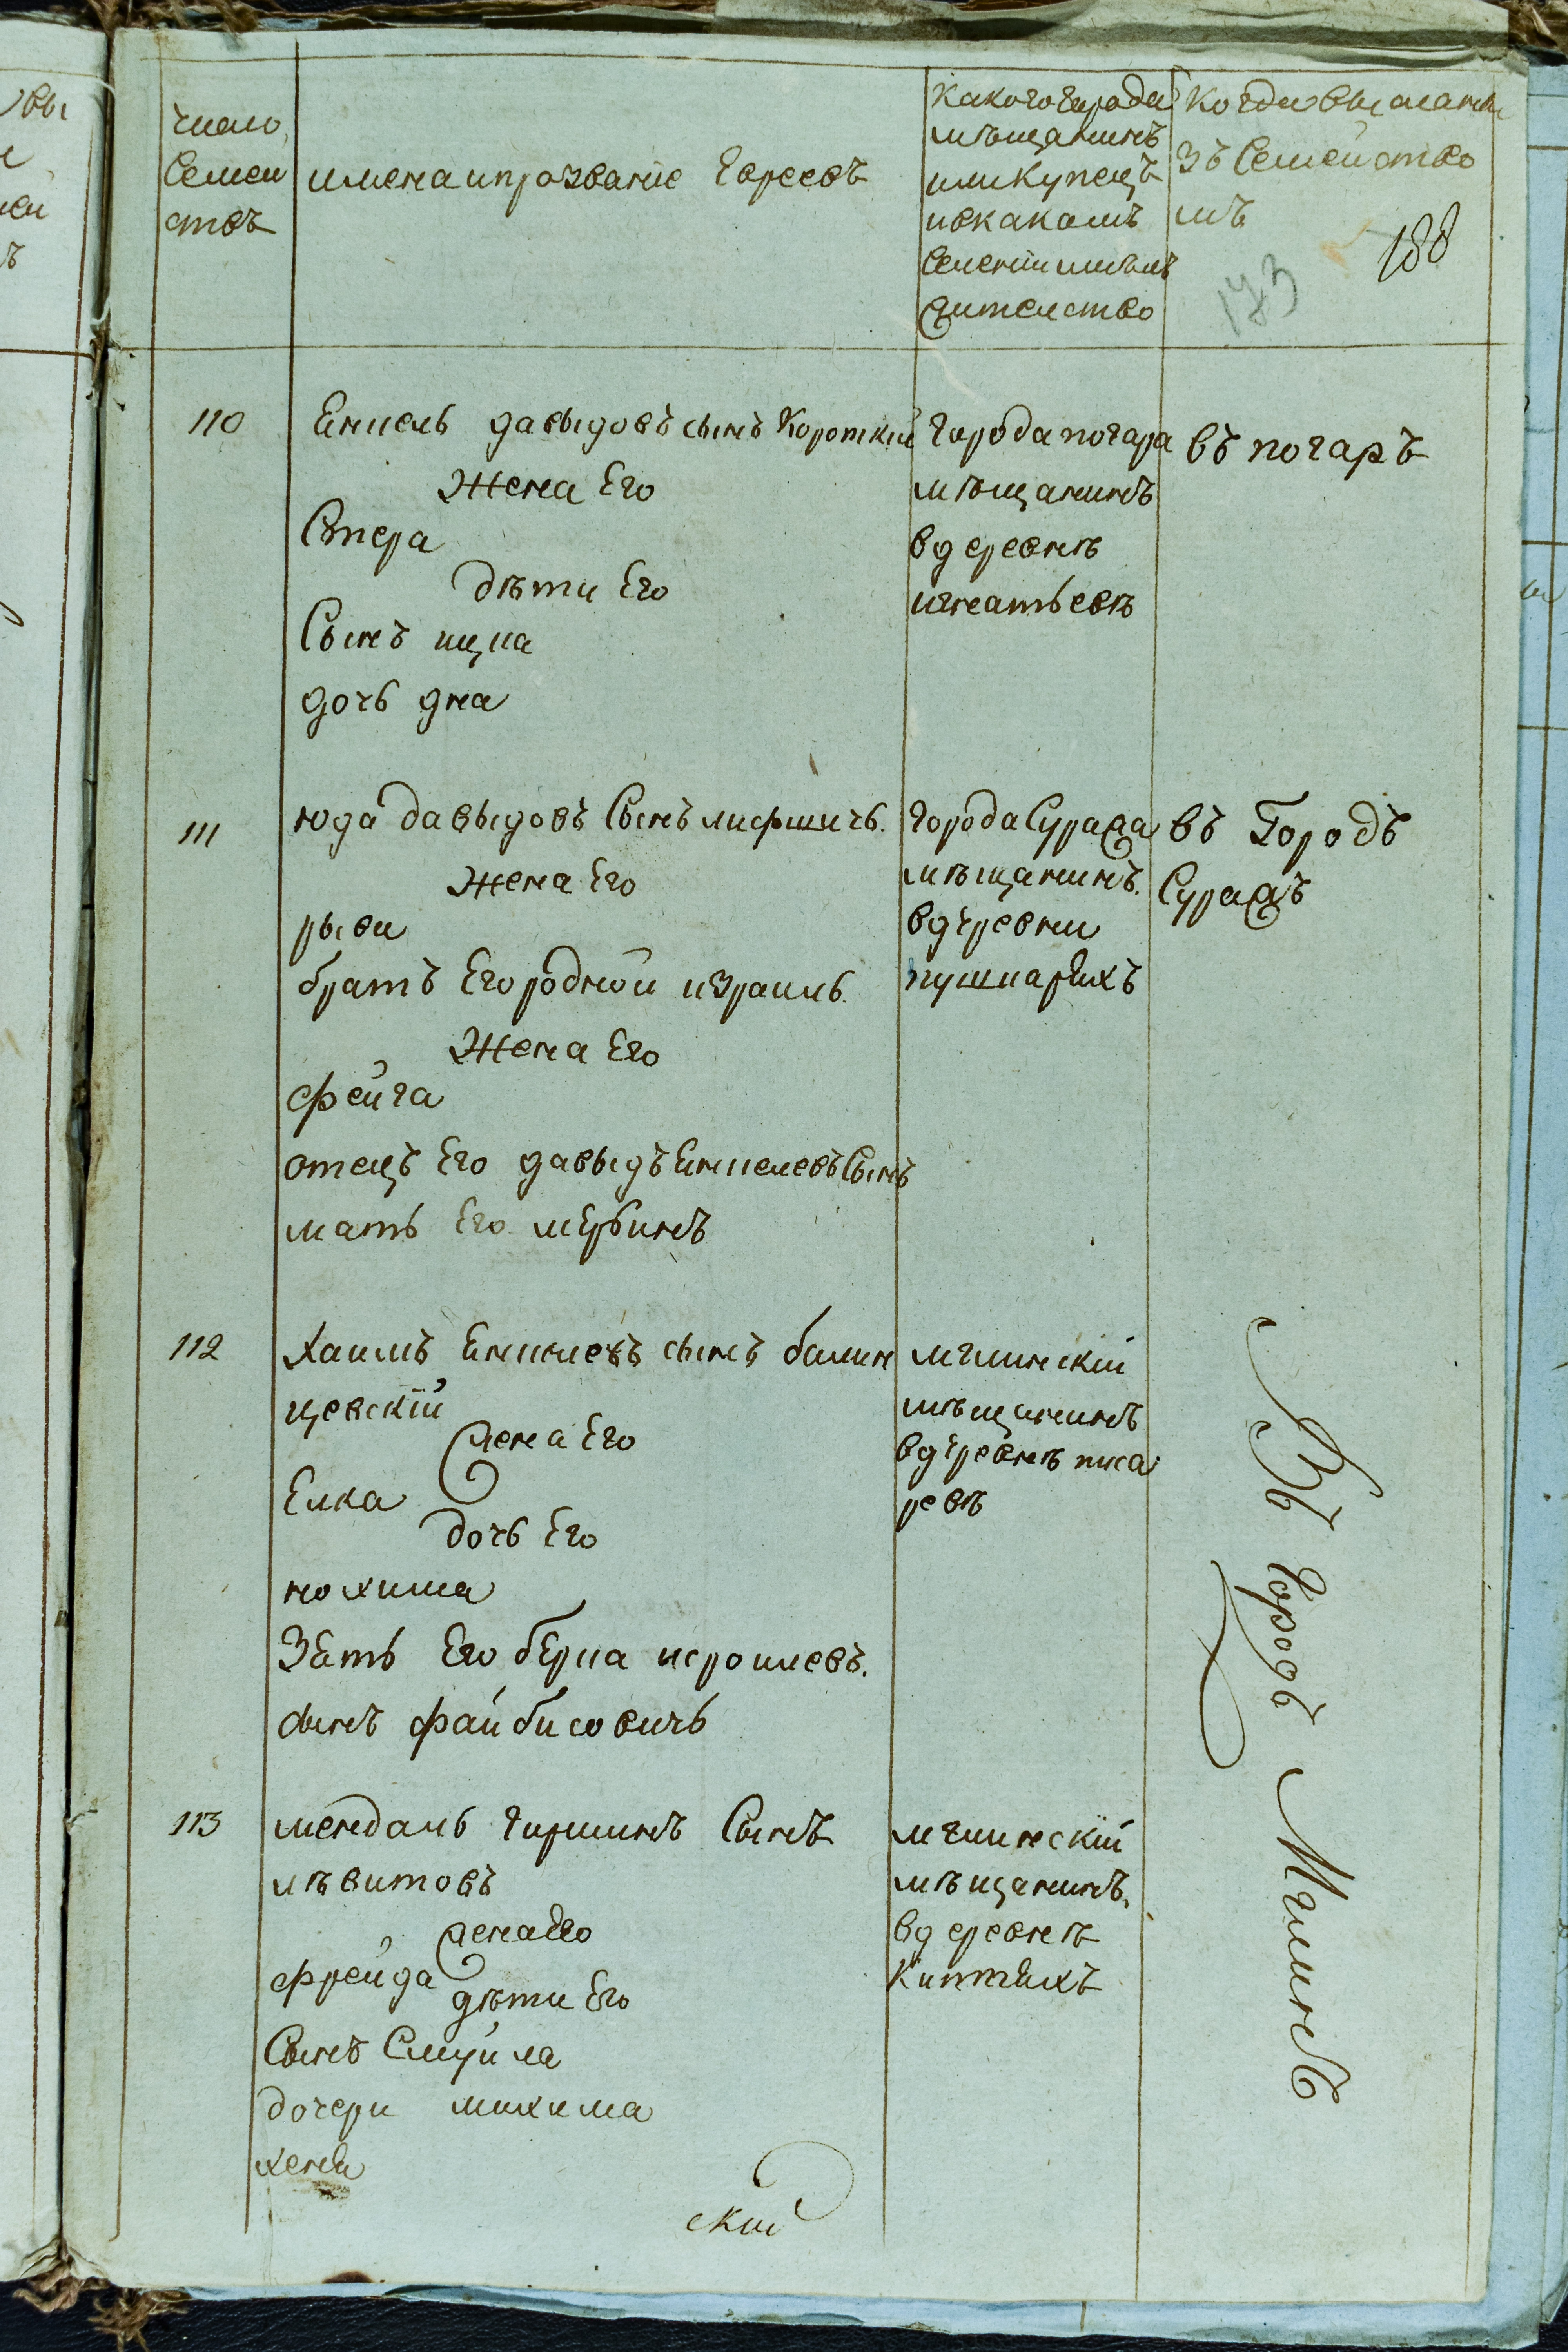 число
семей
ствъ
имена ипрозваніе Евреевъ
какого города
мѣщанинъ
или купецъ
ивкакомъ
селеніи имѣлъ
жителство
когда высланы
зъ Семейство
мъ
173
188
110
Енпель давыдовъ сынъ Короткій
Жена Его
Стера
дѣти Его
Сынъ ицпа
дочь дна
города погара
мѣщанинъ
вдеревнѣ
игнатьевѣ
въ погаръ
111
юда давыдовъ Сынъ лифшичь.
Жена Его
рыви
братъ Его родной израиль.
Жена Его
фейга
отецъ Его давыдъ Енпелевъ Сынъ
мать Его
города Суража
мѣщанинъ.
вдеревни
въ Городъ
Суражъ
112
хаимъ Енпелевъ сынъ балин
цевскій
жена Его
Елка
дочь Его
нохима
Зять Его берпа исроилевъ.
сынъ файбисовичь
мглинскій
мѣщанинъ
вдеревнѣ писа
ревѣ
113
мендаль гиршинъ Сынъ
лѣвитовъ
жена Его
фрейда
дѣти Его
Сынъ Смуйла
дочери михима
хеня
мглинскій
мѣщанинъ.
вдеревнѣ
Киптяхъ
Въ городъ Мглинъ
ской